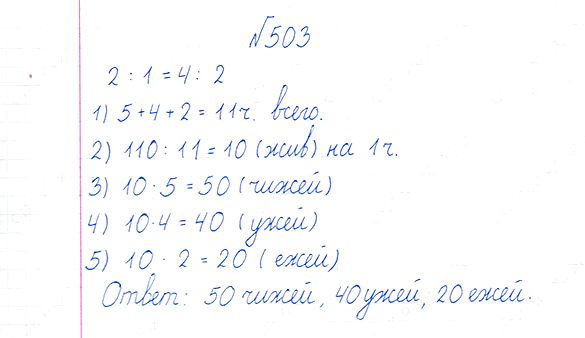 №503
2 : 1 = 4 : 2
1) 5 + 4 + 2 = 11 ч. всего.
2) 110 : 11 = 10 (жив) на 1 ч.
3) 10 · 5 = 50 (чижей)
4) 10 · 4 = 40 (ужей)
5) 10 · 2 = 20 (ежей)
Ответ: 50 чижей, 40 ужей, 20 ежей.